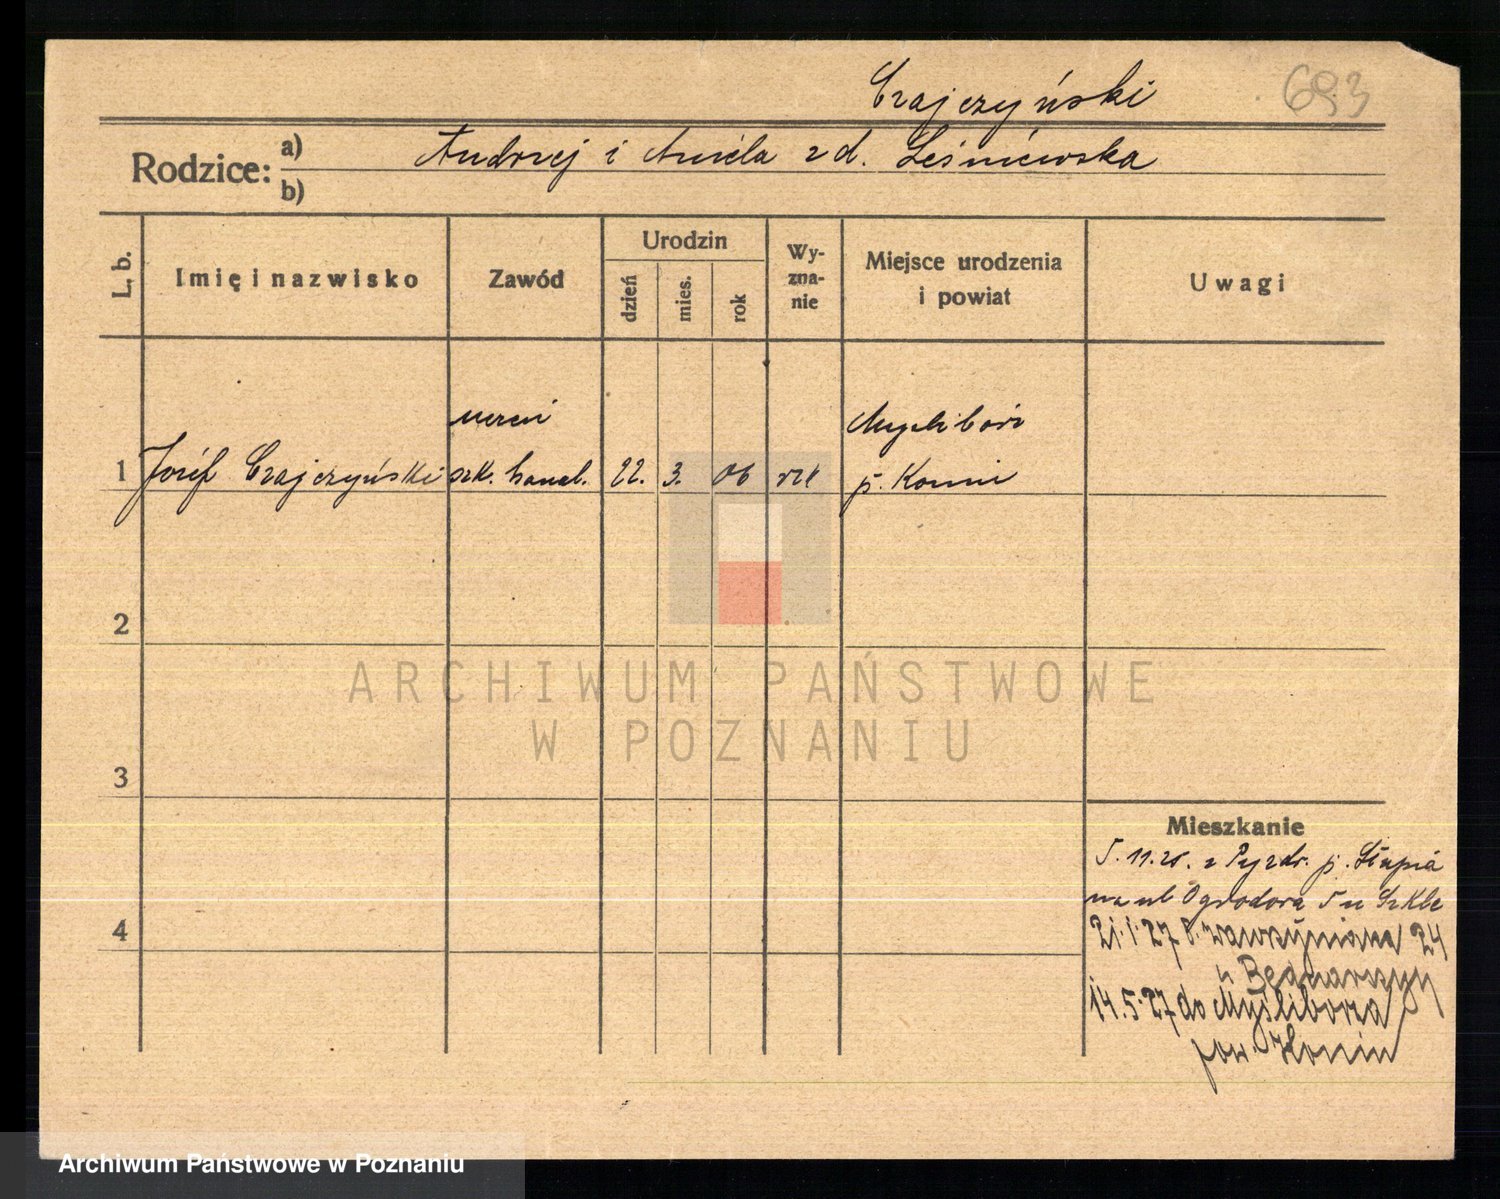 Czajczyński 693
Rodzice: a) Andrzej i Aniela z d. Leśniewska
b)
L. b. Imię i nazwisko Zawód Urodzin dzień mies. rok Wy-zna-nie Miejsce urodzenia i powiat Uwagi
uczeń Myślibórz
1 Józef Czajczyński szk. handl. 22. 3. 06 rzk p. Konin
2
3
4
Mieszkanie
5.11.25. z Pyzdr. p. Słupca
na ul Ogrodora 5 u
21.1.27 Wawrzyniana 24
u Bednarszyj
14.5.27 do Myśliborza
pow. Konin
ARCHIWUM PAŃSTWOWE
W POZNANIU
Archiwum Państwowe w Poznaniu